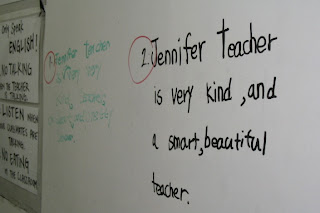 ONLY SPEAK
ENGLISH!
NO TALKING
WHEN THE TEACHER
IS TALKING.
LISTEN WHEN
YOUR CLASSMATES ARE
TALKING.
NO EATING
IN THE CLASSROOM
1. Jennifer teacher
is very very
kind,
2. Jennifer teacher
is very kind, and
a smart, beautiful
teacher.